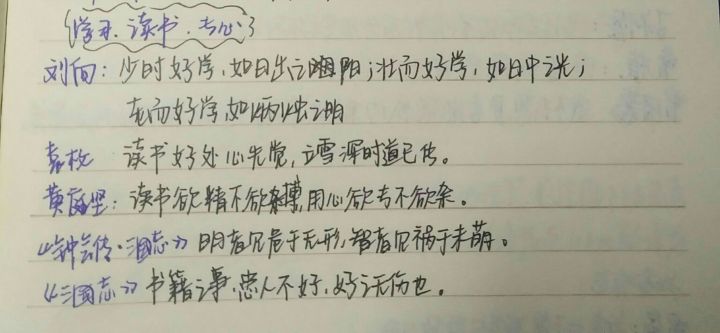 学习．读书．专心
刘向：少时好学，如日出之阳；壮而好学，如日中之光；
老而好学，如炳烛之明
袁枚 读书好处心先觉，立雪深时道已传。
黄庭坚：读书欲精不欲博，用心欲专不欲杂。
《钟会传·三国志》明者见危于无形，智者见祸于未萌。
《三国志》书籍之事，患人不好，好之无伤也。